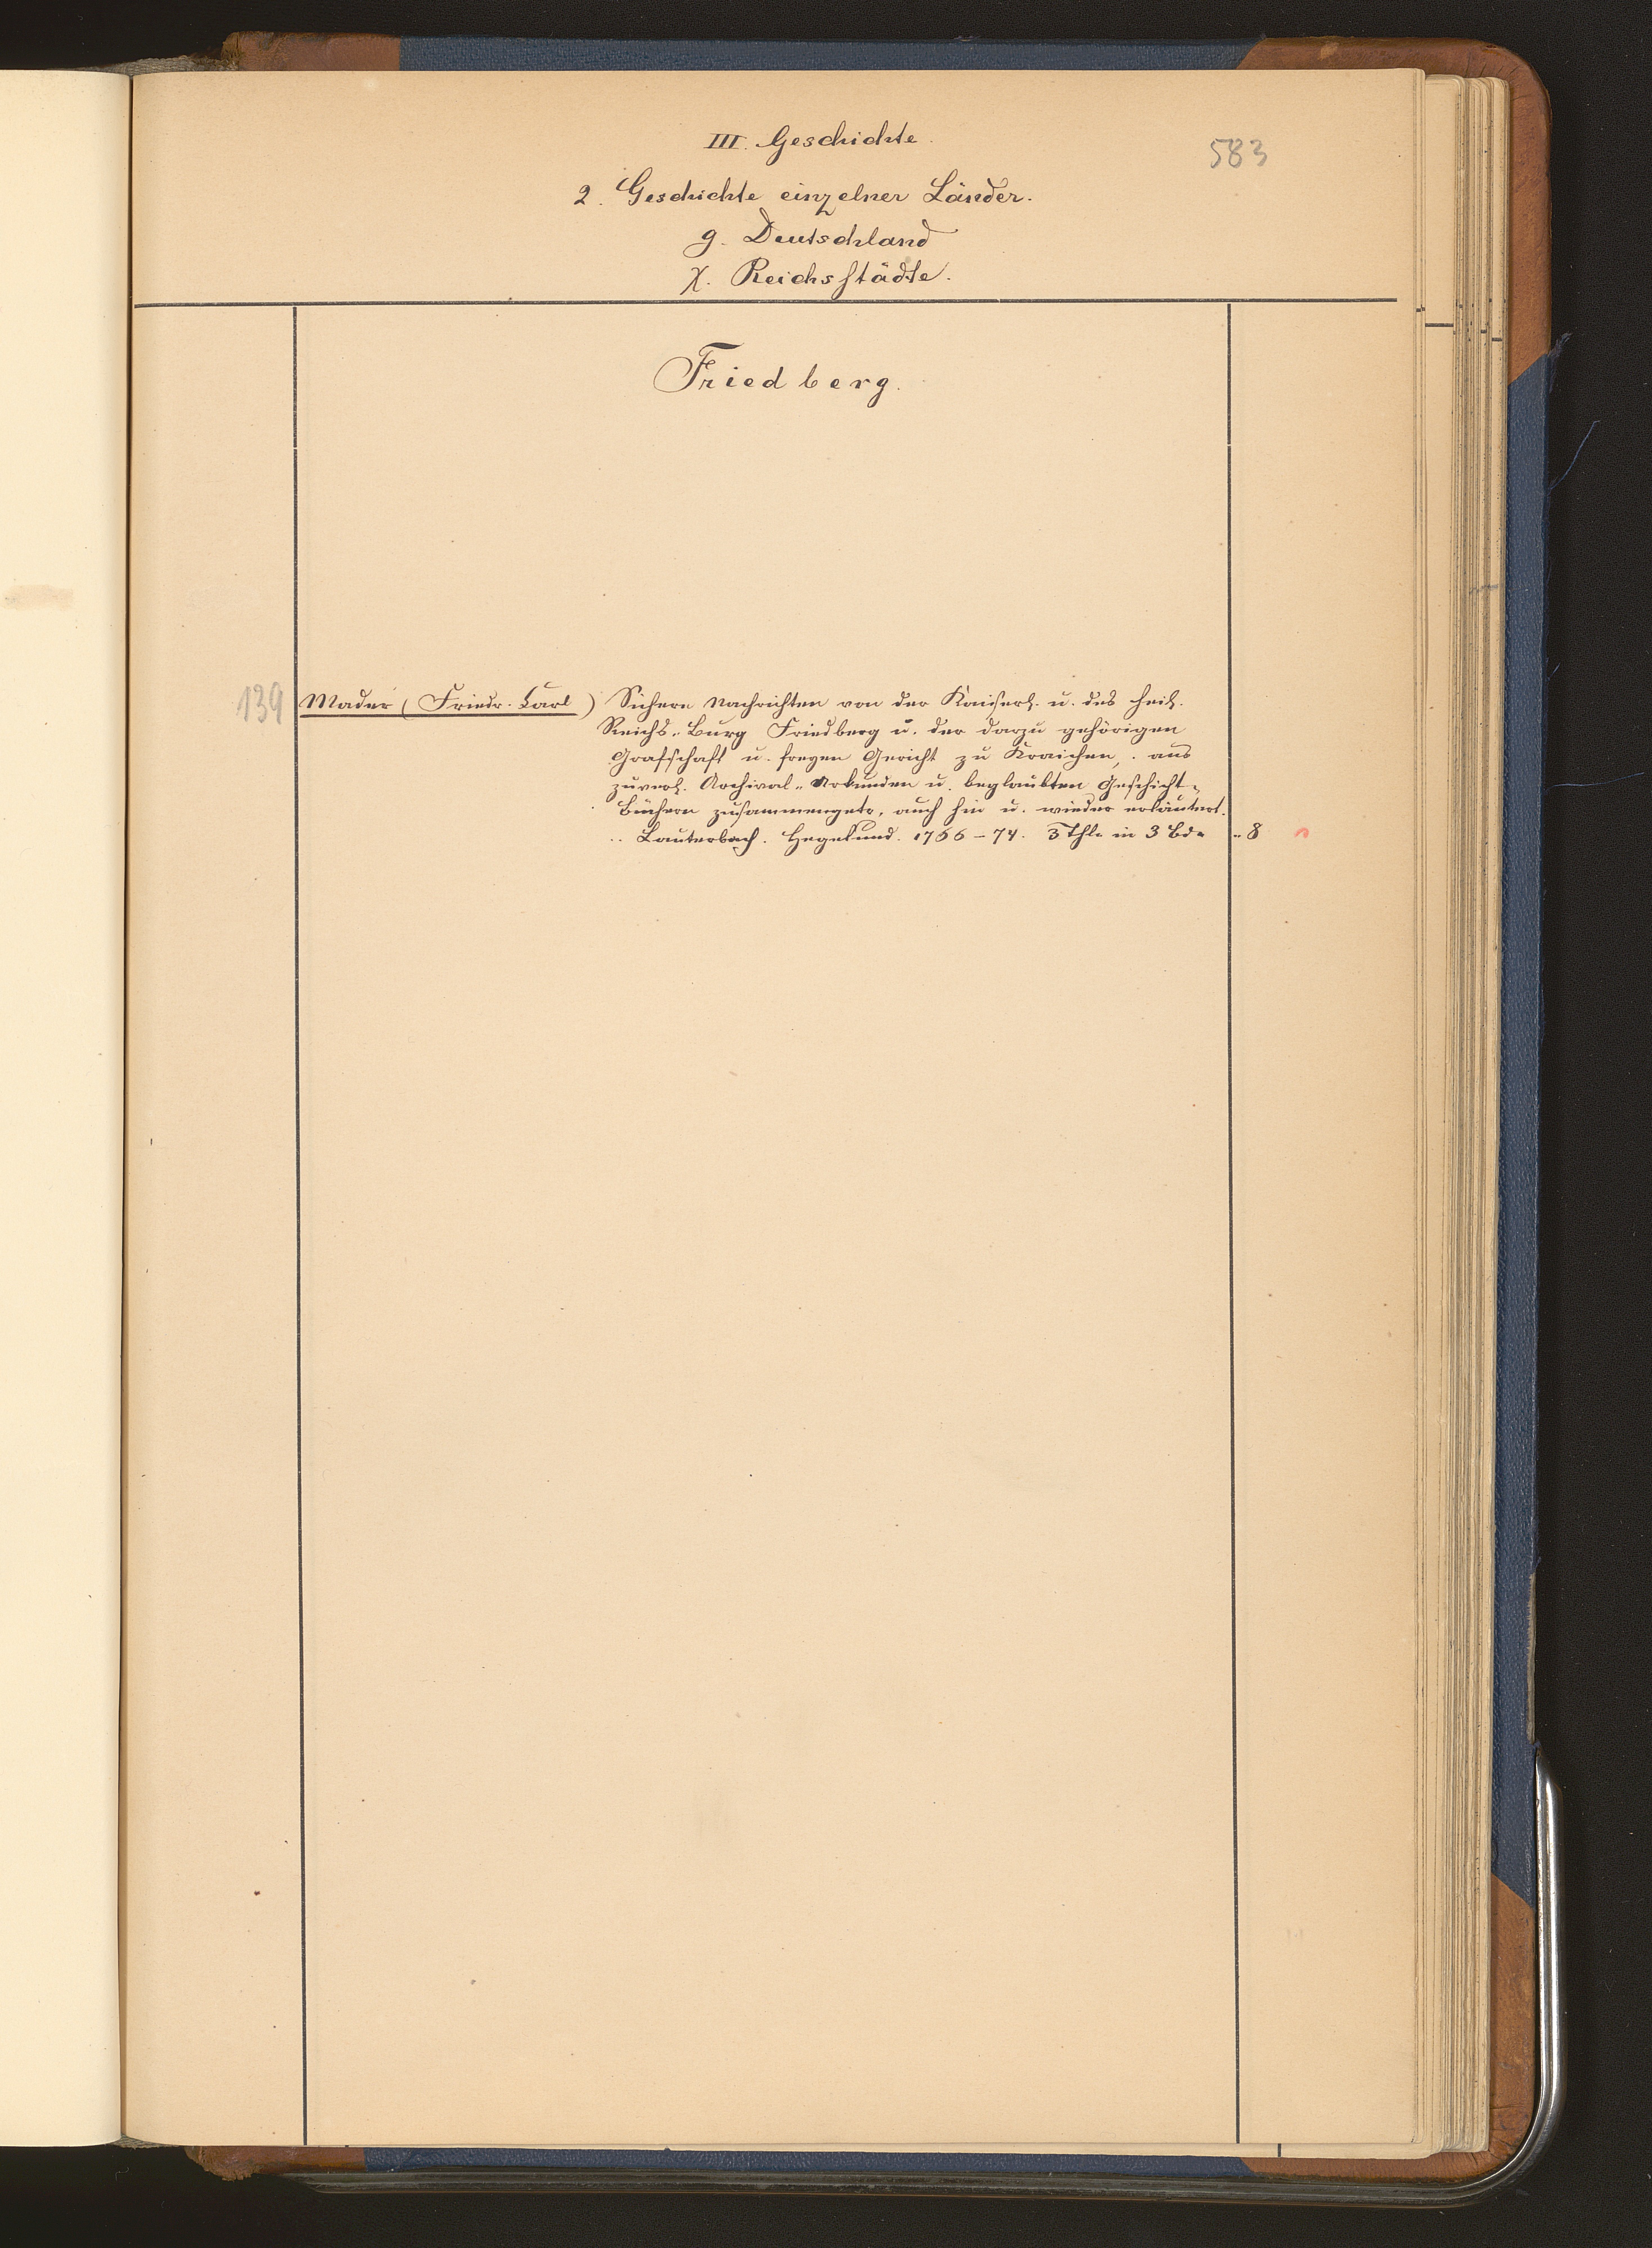 III. Geschichte.
583
2. Geschichte einzelner Länder.
g. Deutschland
χ. Reichsstädte.
Friedberg.
139 Mader (Friedr. Carl) Sichere Nachrichten von der Kaiserl. u. des heil.
Reichs-Burg Friedberg u. der darzu gehörigen
Grafschaft u. freyen Gericht zu Kaichen, aus
zuverl. Archival-Urkunden u. beglaubten Geschicht-
Büchern zusammengetr, auch hin u. wieder erläutert.
Lauterbach. Hegelund. 1766-74. 3 Thle in 3 Bde 8